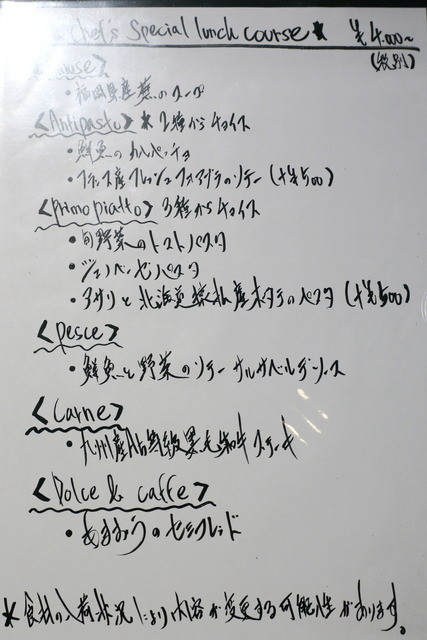 Chef's Special lunch course ★ ¥4.000~
(税別)
・福岡県産蕪のスープ
<Antipasto> ★ 2種からチョイス
・鮮魚のカルパッチョ
・フランス産フレッシュフォアグラのソテー (+¥500)
<primo pialto> 3種からチョイス
・旬野菜のトマトパスタ
・ジェノベーゼパスタ
・アサリと北海道襟裳産ホタテのパスタ (+¥500)
<pesce>
・鮮魚と野菜のソテー サルサベルデソース
<Carne>
・九州産A5等級黒毛和牛ステーキ
<Dolce & caffe>
・あまおうのセミフレッド
★食材の入荷状況により内容が変更する可能性があります。